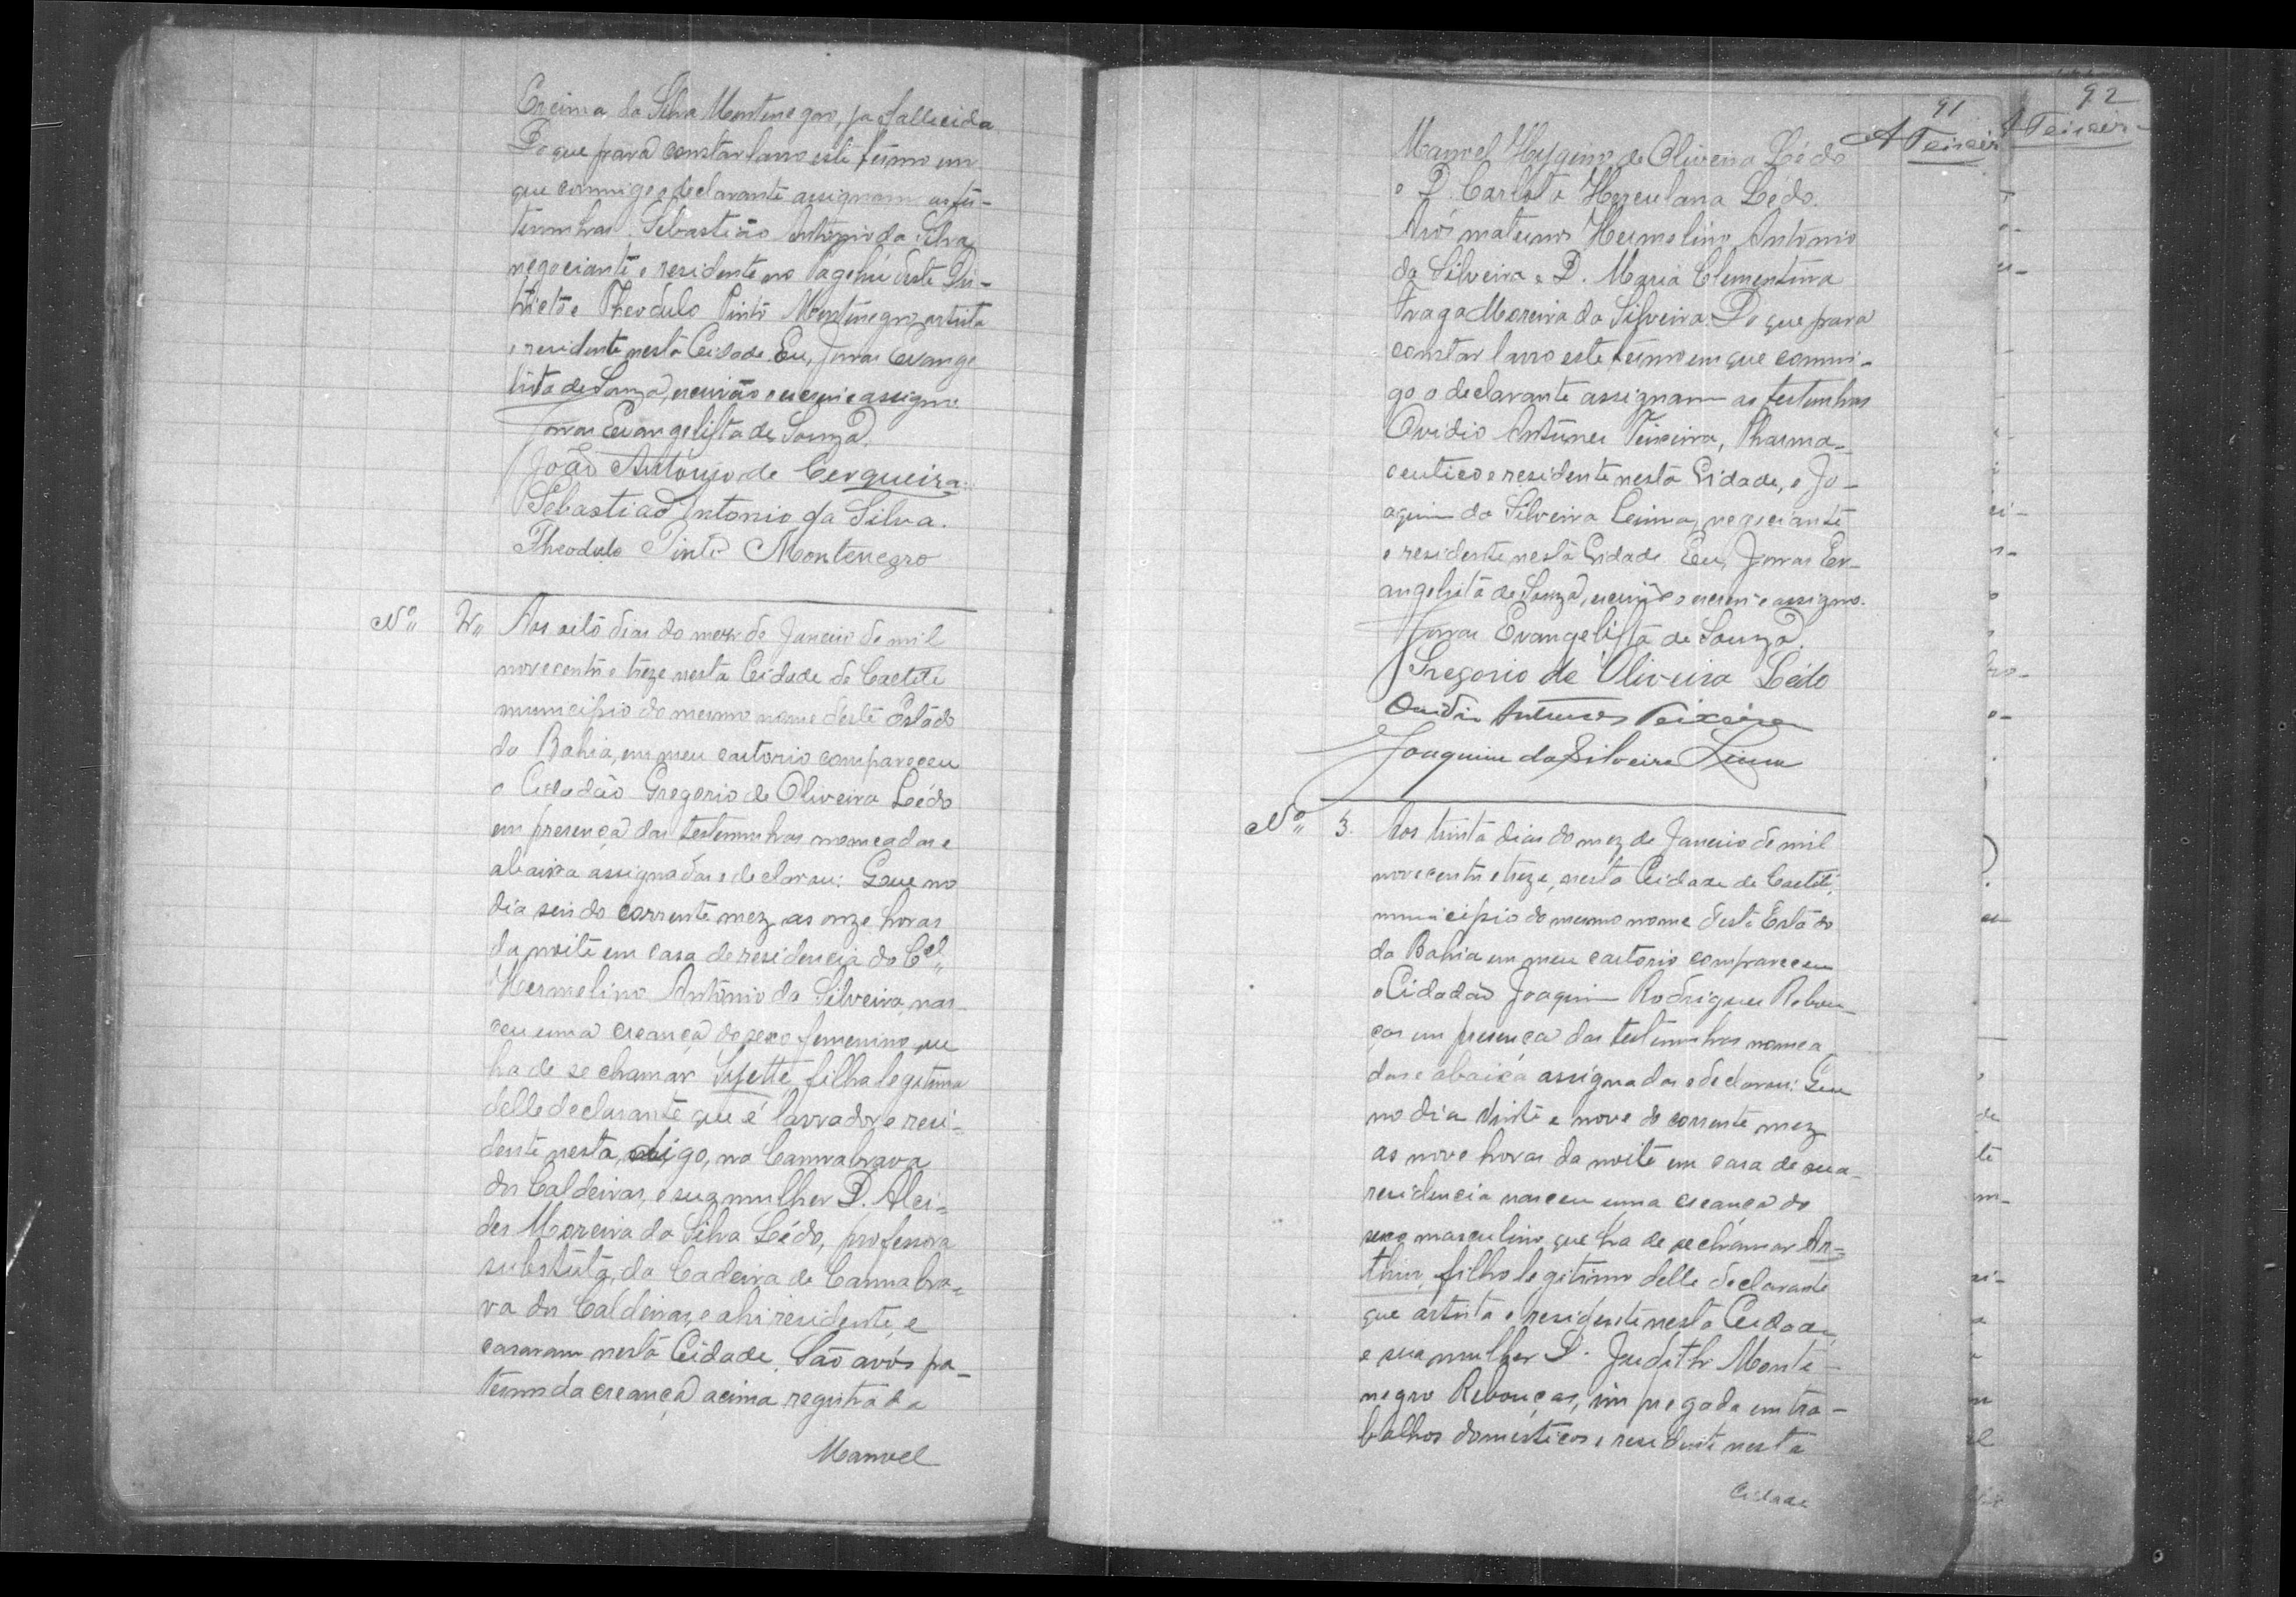 Ercina da Silva Montenegro, ja fallecida
Do que para constar lavro este termo em
que commigo o declarante assignam as tes-
temunhas Sebastião Antonio da Silva
negociante e residente no Pagehú deste Dis-
tricto e Theodulo Pinto Montenegro, artista
e residente nesta Cidade. Eu, Jonas Evange
lista de Souza, escrivão o escrevi e assigno.
Jonas Evangelista de Souza.
João Antonio de Cerqueira.
Sebastiao Antonio da Silva.
Theodulo Pinto Montenegro
Nº 2 Aos oito dias do mez de Janeiro de mil
novecentos e treze nesta Cidade de Caeteté
municipio do mesmo nome deste Estado
da Bahia, em meu cartorio compareceu
o Cidadão Gregorio de Oliveira Lédo
em presença das testemunhas nomeadas e
abaixo assignadas e declarou: Que no
dia seis do corrente mez, as onze horas
da noite em casa de residencia do Cel.
Hermelino Antonio da Silveira, nas-
ceu uma creança do sexo femenino que
ha de se chamar filha legitima
delle declarante que é lavrador e resi-
dente nesta, digo, na Cannabrava
dos Caldeiras, e sua mulher D. Alci-
des Moreira da Silva Lédo, professora
substituta, da Cadeira de Cannabra-
va dos Caldeiras, e ahi residente, e
casaram nesta Cidade. São avós pa-
ternos da creança acima registrada
Manoel
91
A Teixeir
92
A Teixeir
Manoel Hygino de Oliveira Lédo
e D. Carlota Herculana Lédo.
Avós maternos Hermelino Antonio
da Silveira e D. Maria Clementina
Fraga Moreira da Silveira. Do que para
constar lavro este termo em que commi-
go o declarante assignam as testunhas
Ovidio Antunes Teixeira, Pharma-
ceutico e residente nesta Cidade, e Jo-
aquim da Silveira Leima, negociante
e residente nesta Cidade. Eu, Jonas Ev-
angelista de Souza, escrivão o escrevi e assigno.
Jonas Evangelista de Souza.
Gregorio de Oliveira Lédo
Ovidio Antunes Teixeira
Joaquim da Silveira
Nº 3. Aos trinta dias do mez de Janeiro de mil
novecentos e treze, nesta Cidade de Caeteté,
municipio do mesmo nome deste Estado
da Bahia em meu cartorio compareceu
o Cidadão Joaquim Rodrigues Rebou-
ças em presença das testemunhas nomea
das e abaixo assignadas e declarou: Que
no dia vinte e nove do corrente mez
as nove horas da noite em casa de sua
residencia nasceu uma creança do
sexo masculino que ha de se chamar Ar-
thur, filho legitimo delle declarante
que artista e residente nesta Cidade,
e sua mulher D. Judith Monte-
negro Rebouças, impregada em tra-
balhos domesticos e residente nesta
Cidade